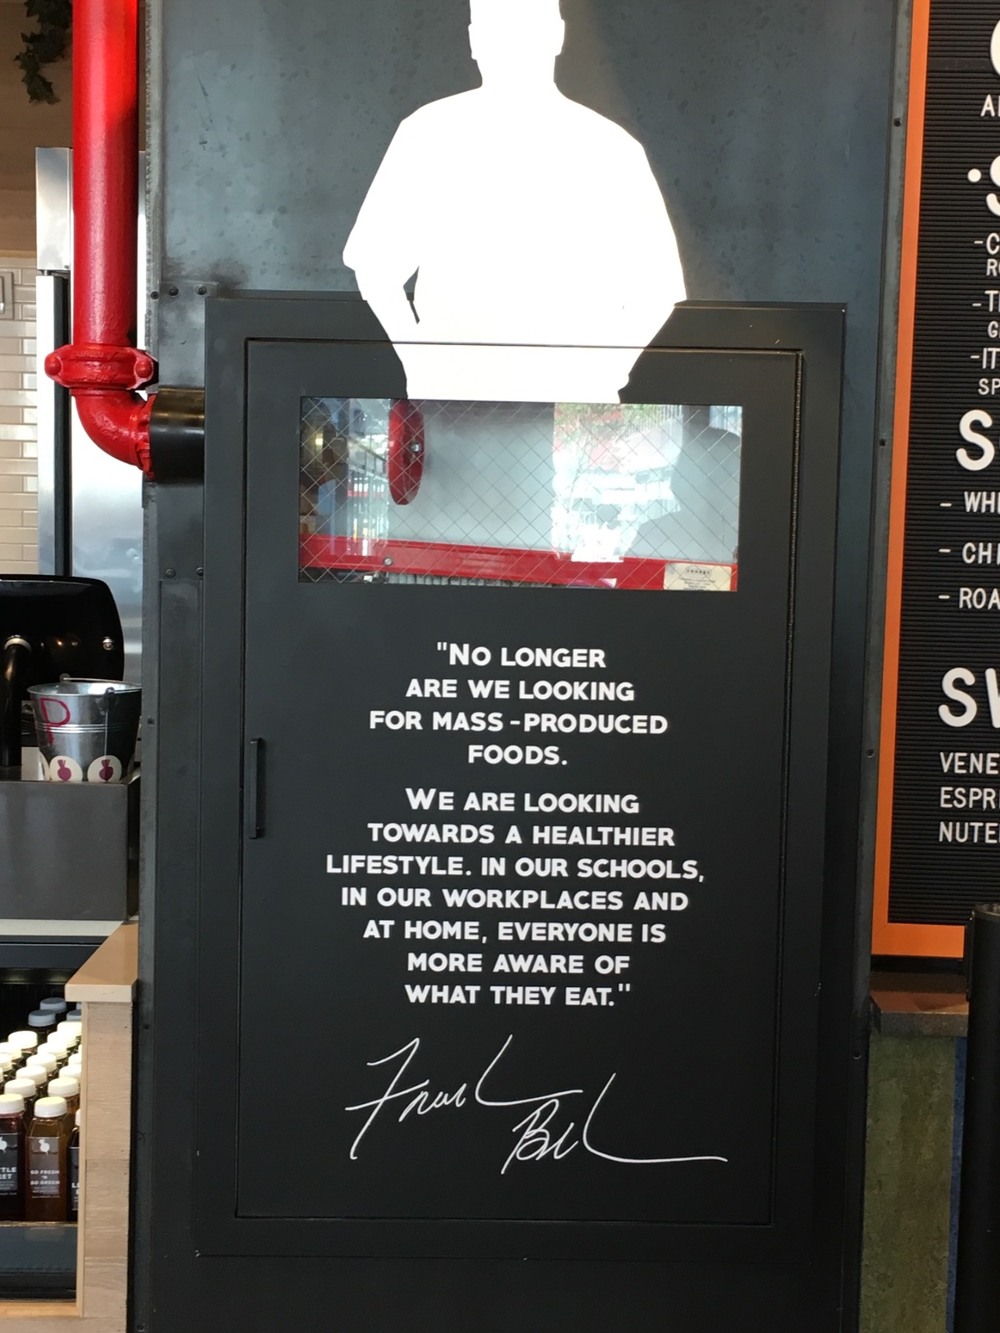 "No LONGER
ARE WE LOOKING
FOR MASS-PRODUCED
FOODS.
WE ARE LOOKING
TOWARDS A HEALTHIER
LIFESTYLE. IN OUR SCHOOLS,
IN OUR WORKPLACES AND
AT HOME, EVERYONE IS
MORE AWARE OF
WHAT THEY EAT."
- WH
- CHI
- ROA
SW
VENE
ESPR
NUTE
GO FRESH
'N
GO GREEN